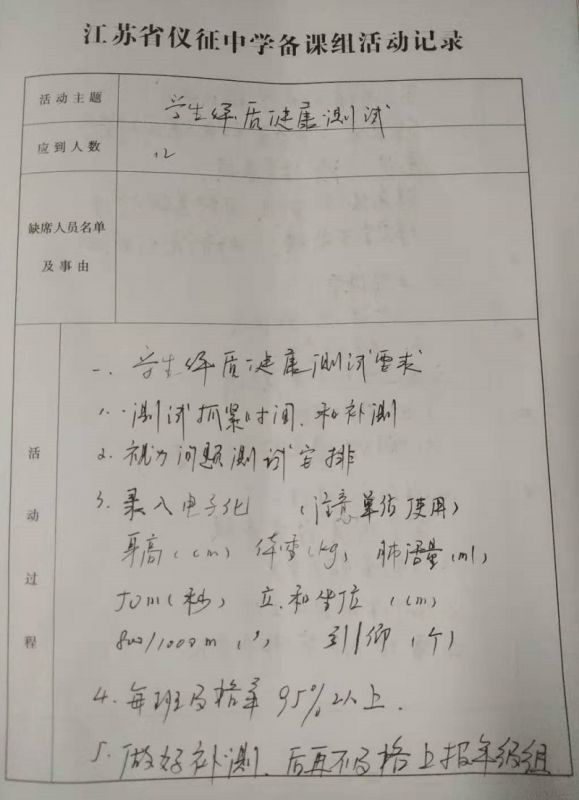 江苏省仪征中学备课组活动记录
活动主题 学生体质健康测试
应到人数 12
缺席人员名单及事由
活动过程
一、学生体质健康测试要求
1、测试抓紧时间、和补测
2、视力问题测试安排
3、录入电子化 (注意单位使用)
身高(cm) 体重(kg) 肺活量(ml)
50m(秒) 立、和坐位 (cm)
800/1000m (′) 引|仰 (个)
4、每班及格率95%以上.
5、做好补测、后再不及格上报年级组